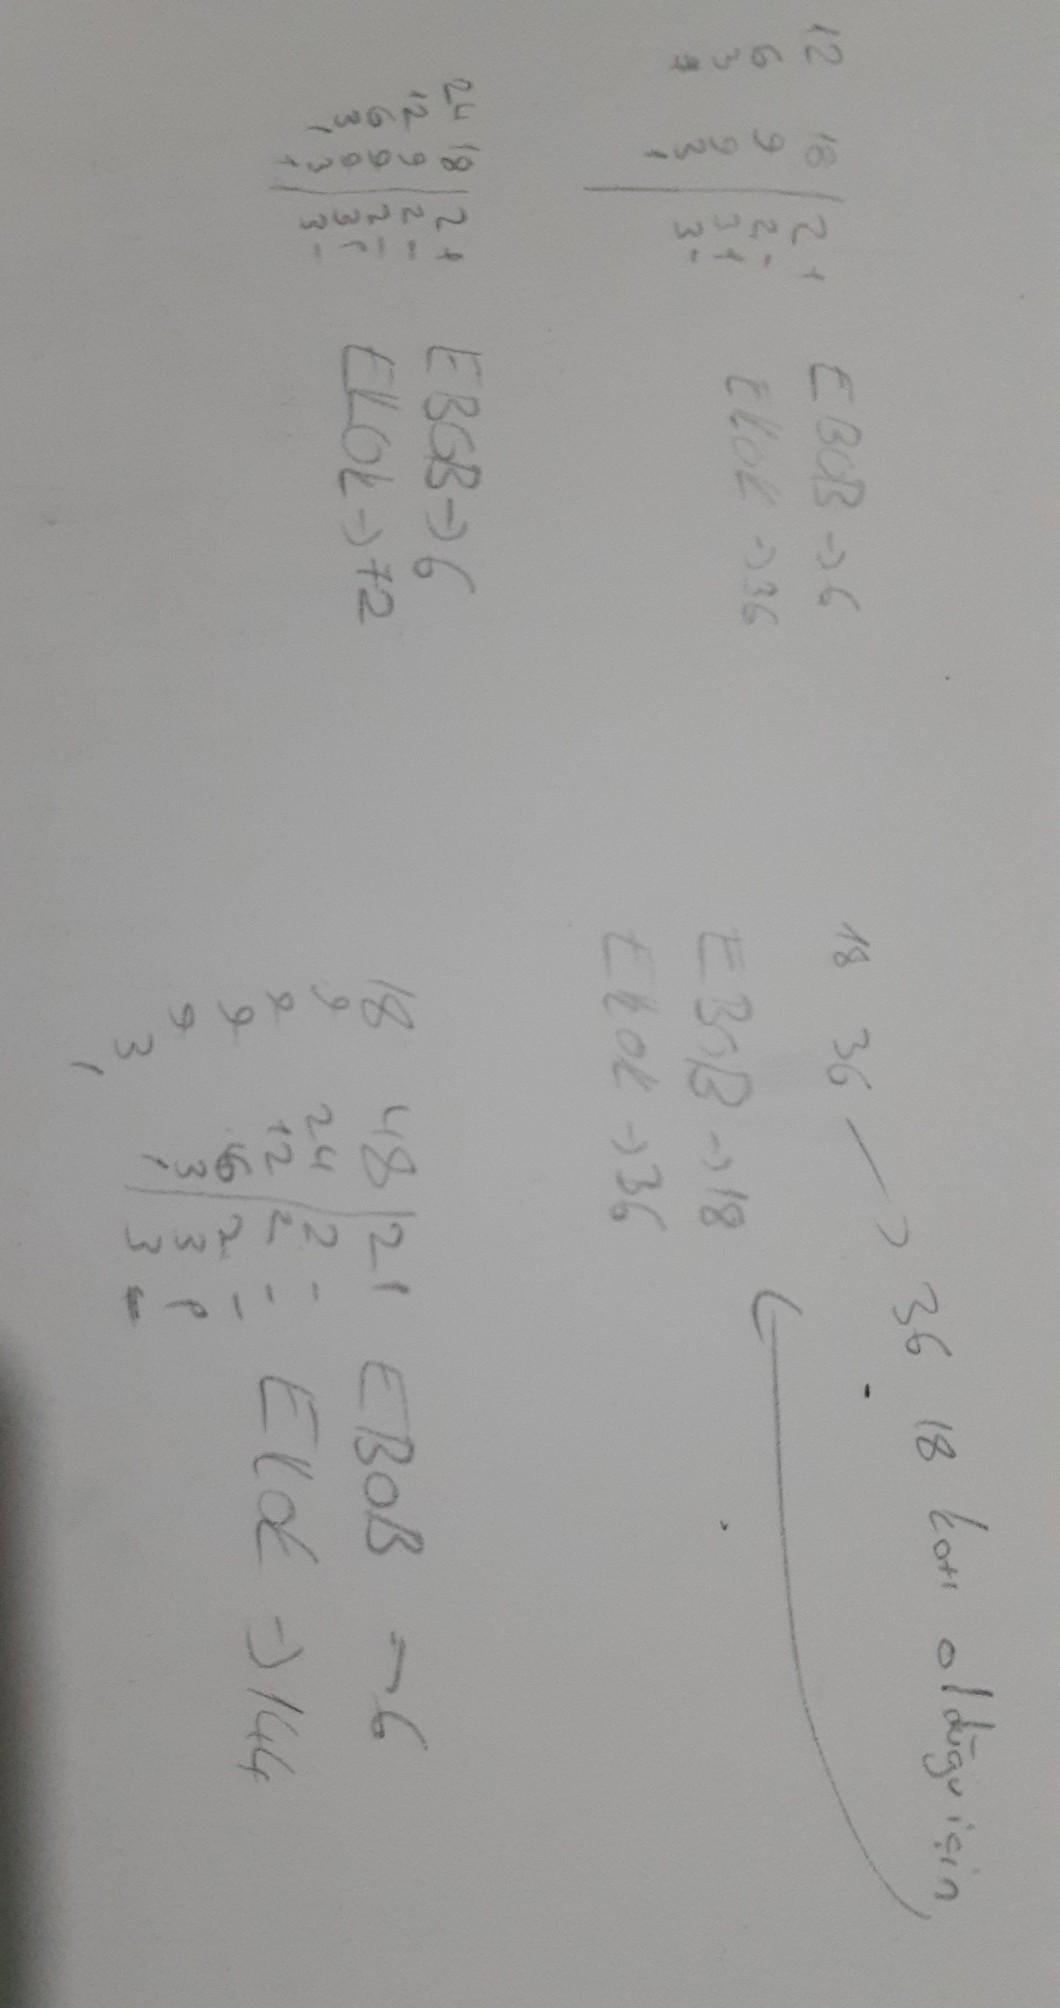 12 18 | 2 +
6 9 | 2 -
3 9 | 3 +
1 3 | 3 -
1
EBOB → 6
EKOK → 36
18 36 → 36 18 katı olduğu için
EBOB → 18
EKOK → 36
24 18 | 2 +
12 9 | 2 -
6 9 | 2 -
3 9 | 3 +
1 3 | 3 -
1
EBOB → 6
EKOK → 72
18 48 | 2 +
9 24 | 2 -
9 12 | 2 -
9 6 | 2 -
9 3 | 3 +
3 1 | 3 -
1
EBOB → 6
EKOK → 144